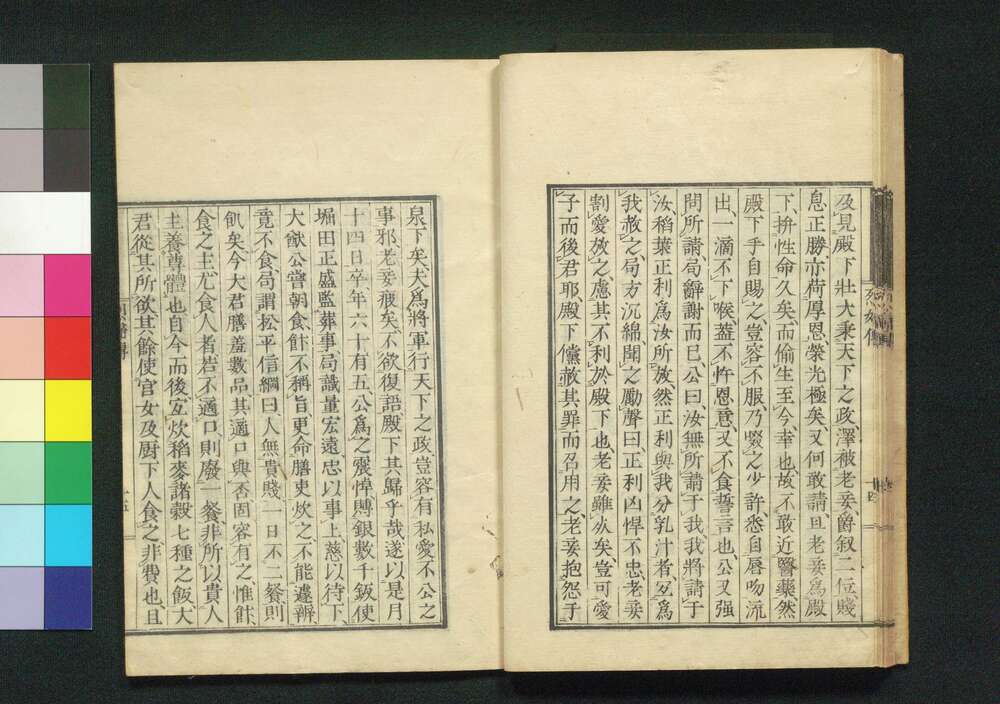 及見殿下壯大秉天下之政澤被老妾爵叙二位賤
息正勝亦荷厚恩榮光極矣又何敢請且老妾爲殿
下拚性命久矣而偷生至今幸也故不敢近醫藥然
殿下手自賜之豈容不服乃啜之少許悉自唇吻流
出一滴不下喉蓋不忤恩意又不食誓言也公又强
問所請局辭謝而已公曰汝無所請于我我將請于
汝稻葉正利爲汝所放然正利與我分乳汁者冝爲
我赦之局方沉綿聞之勵聲曰正利凶悍不忠老妾
割愛放之慮其不利於殿下也老妾雖亾矣豈可愛
子而後君耶殿下儻赦其罪而召用之老妾抱怨于
泉下矣夫爲將軍行天下之政豈容有私愛不公之
事邪老妾疲矣不欲復語殿下其歸乎哉遂以是月
十四日卒年六十有五公爲之震悼賻銀數千鈑使
堀田正盛監葬事局識量宏遠忠以事上慈以待下
大猷公嘗朝食飰不稱旨更命膳吏炊之不能遽辨
竟不食局謂松平信綱曰人無貴賤一日不二餐則
飢矣今大君膳羞數品其適口與否固容有之惟飰
食之主尤食人者若不適口則廢一餐非所以貴人
主養尊體也自今而後冝炊稻麥諸穀七種之飯大
君從其所欲其餘使官女及厨下人食之非費也且